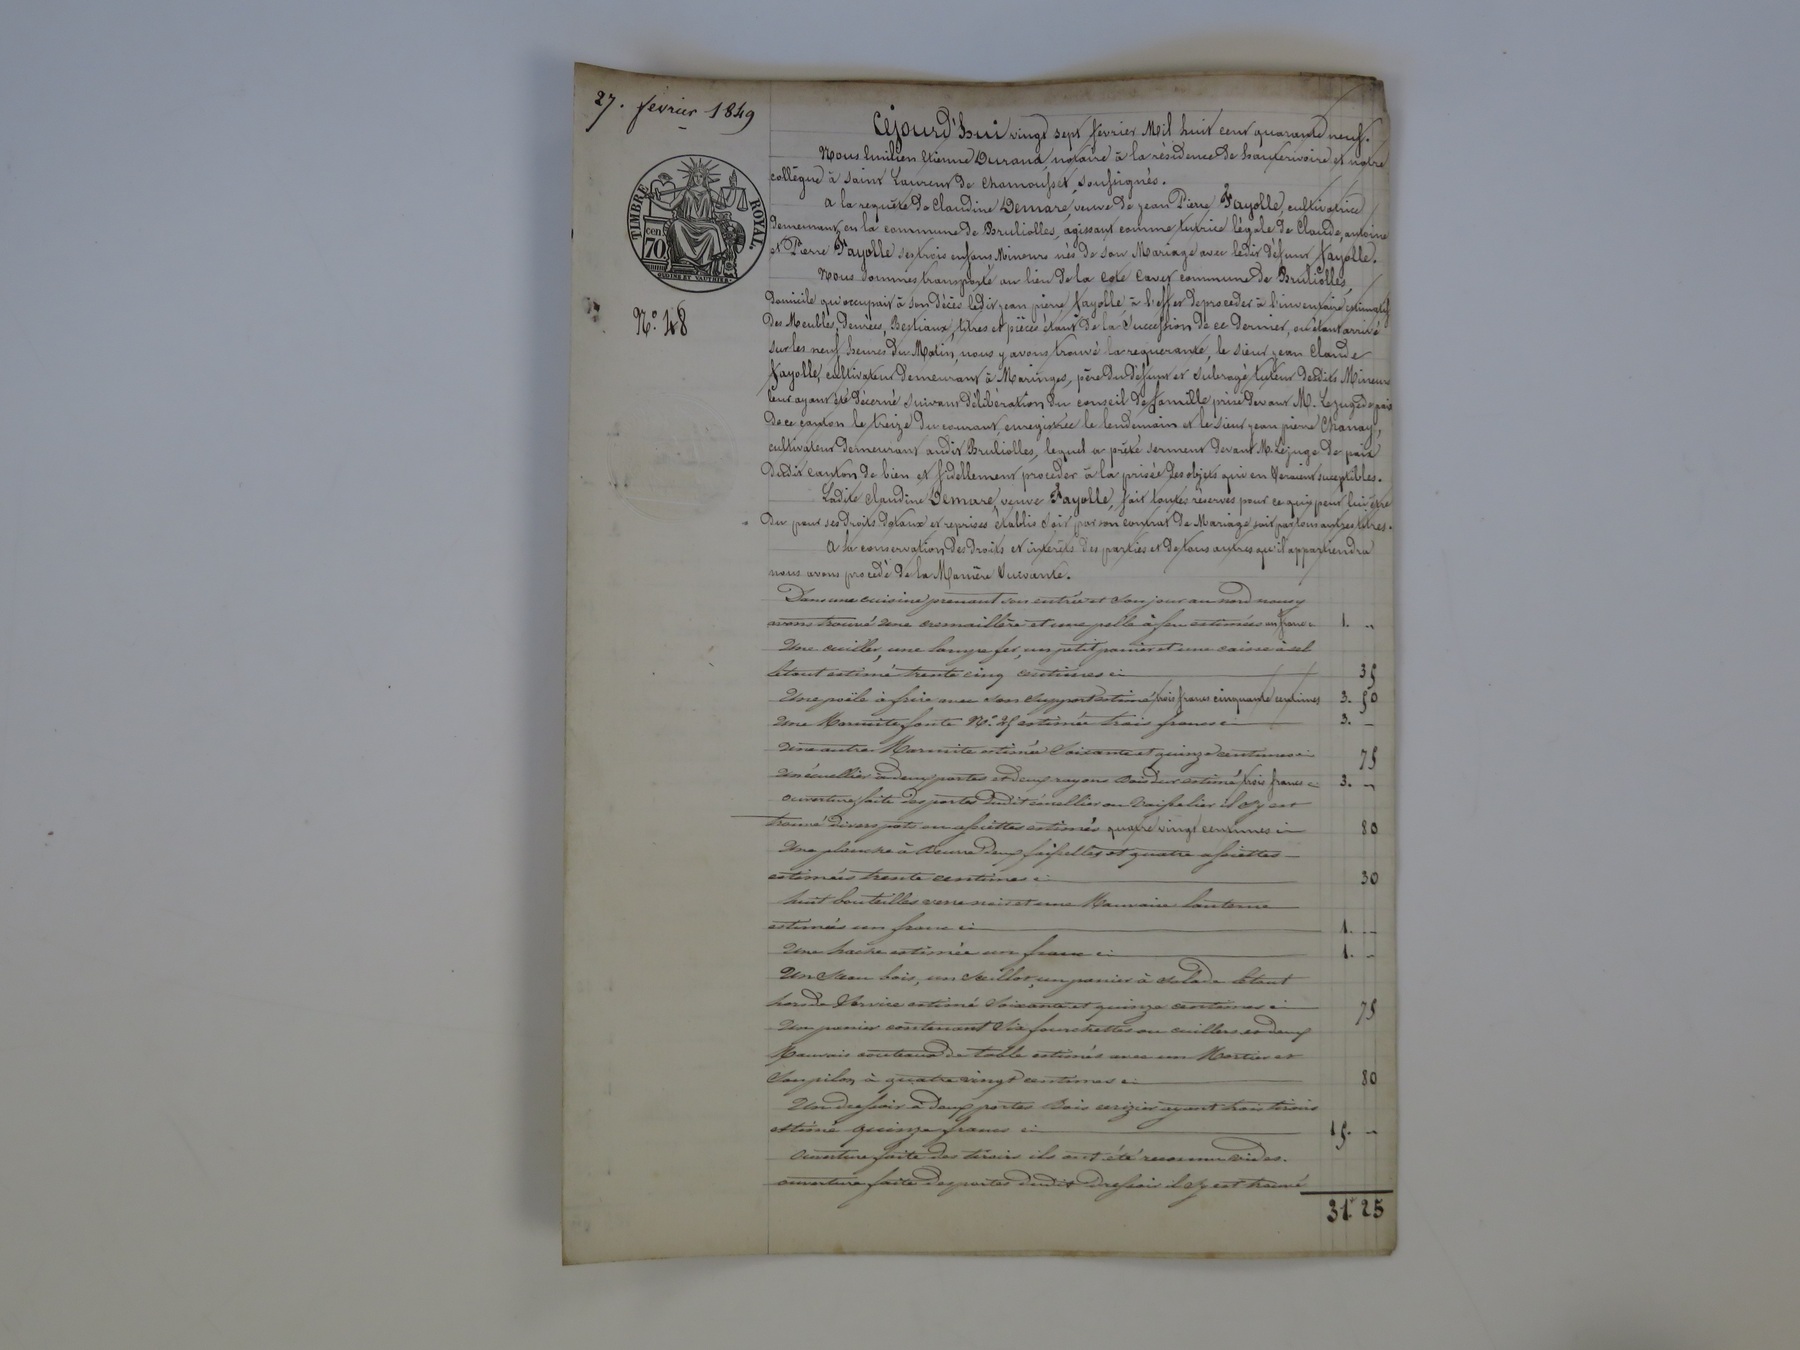 27. février 1849
TIMBRE ROYAL.
70 cen
N.o 48
Cejourd'hui vingt sept février Mil huit cent quarante neuf.
Nous Emilien Etienne Durand, notaire à la résidence de hauterivoire et notre
collègue à Saint Laurent de Chamousset, soussignés.
A la requête de Claudine Demare, veuve de jean Pierre Fayolle, cultivatrice
demeurant en la commune de Brulliolles, agissant comme tutrice légale de Claude, antoine
et Pierre Fayolle ses trois enfans Mineurs nés de son Mariage avec ledit défunt Fayolle.
Nous sommes transporté au lieu de la Cote commune de Brulliolles,
domicile qu'occupait à son décès ledit jean pierre Fayolle à l'effet de proceder à l'inventaire estimatif
des Meubles, denrées, Bestiaux, titres et pièces étant de la Succession de ce dernier, où étant arrivé
sur les neuf heures du Matin, nous y avons trouvé la requerante, le sieur jean Claude
Fayolle, cultivateur demeurant à Maringes, père du défunt et subrogé tuteur desdits Mineurs
leur ayant été décerné suivant délibération du conseil de famille prise devant M. Le juge de paix
de ce canton le treize du courant, enregistrée le lendemain et le sieur jean pierre Chanay,
cultivateur demeurant audit Brulliolles, lequel a prêté serment devant M. Le juge de paix
dudit canton de bien et fidellement proceder à la prisée des objets qui en seraient susceptibles.
Ladite Claudine Demare, veuve Fayolle, fait toutes réserves pour ce qui peut lui être
du pour ses droits dotaux et reprises établis soit par son contrat de Mariage soit par tous autres titres.
A la conservation des droits et intérêts des parties et de tous autres qu'il appartiendra
nous avons procédé de la Manière Suivante.
Dans une cuisine prenant son entrée et son jour au nord nous y
avons trouvé une cremaillère et une pelle à feu estimées un franc ci 1. "
Une cuiller, une lampe fer, un petit panier et une caisse à sel
le tout estimé trente cinq centimes ci 35
Une poële à frire avec son support estimé trois francs cinquante centimes 3. 50
Une Marmite fonte N.o 25 estimée trois francs ci 3. "
Une autre Marmite estimée Soixante et quinze centimes ci 75
Un écuellier à deux portes et deux rayons bois dur estimé trois francs ci 3. "
Ouverture faite des portes dudit écuellier ou Vaisselier il s'y est
trouvé divers pots ou assiettes estimés quatre vingt centimes ci 80
Une planche à beurre deux faisselles et quatre assiettes
estimées trente centimes ci 30
huit bouteilles verre noir et une Mauvaise lanterne
estimées un franc ci 1. "
Une hache estimée un franc ci 1. "
Un Seau bois, un seillot, un panier à salade le tout
hors de Service estimé Soixante et quinze centimes ci 75
Un panier contenant Six fourchettes ou cuillers et deux
Mauvais couteaux de table estimés avec un Mortier et
Son pilon à quatre vingt centimes ci 80
Un dressoir à deux portes Bois cerizier ayant trois tiroirs
estimé quinze francs ci 15. "
Ouverture faite des tiroirs ils ont été reconnu vides.
ouverture faite des portes dudit dressoir il s'y est trouvé
31. 25